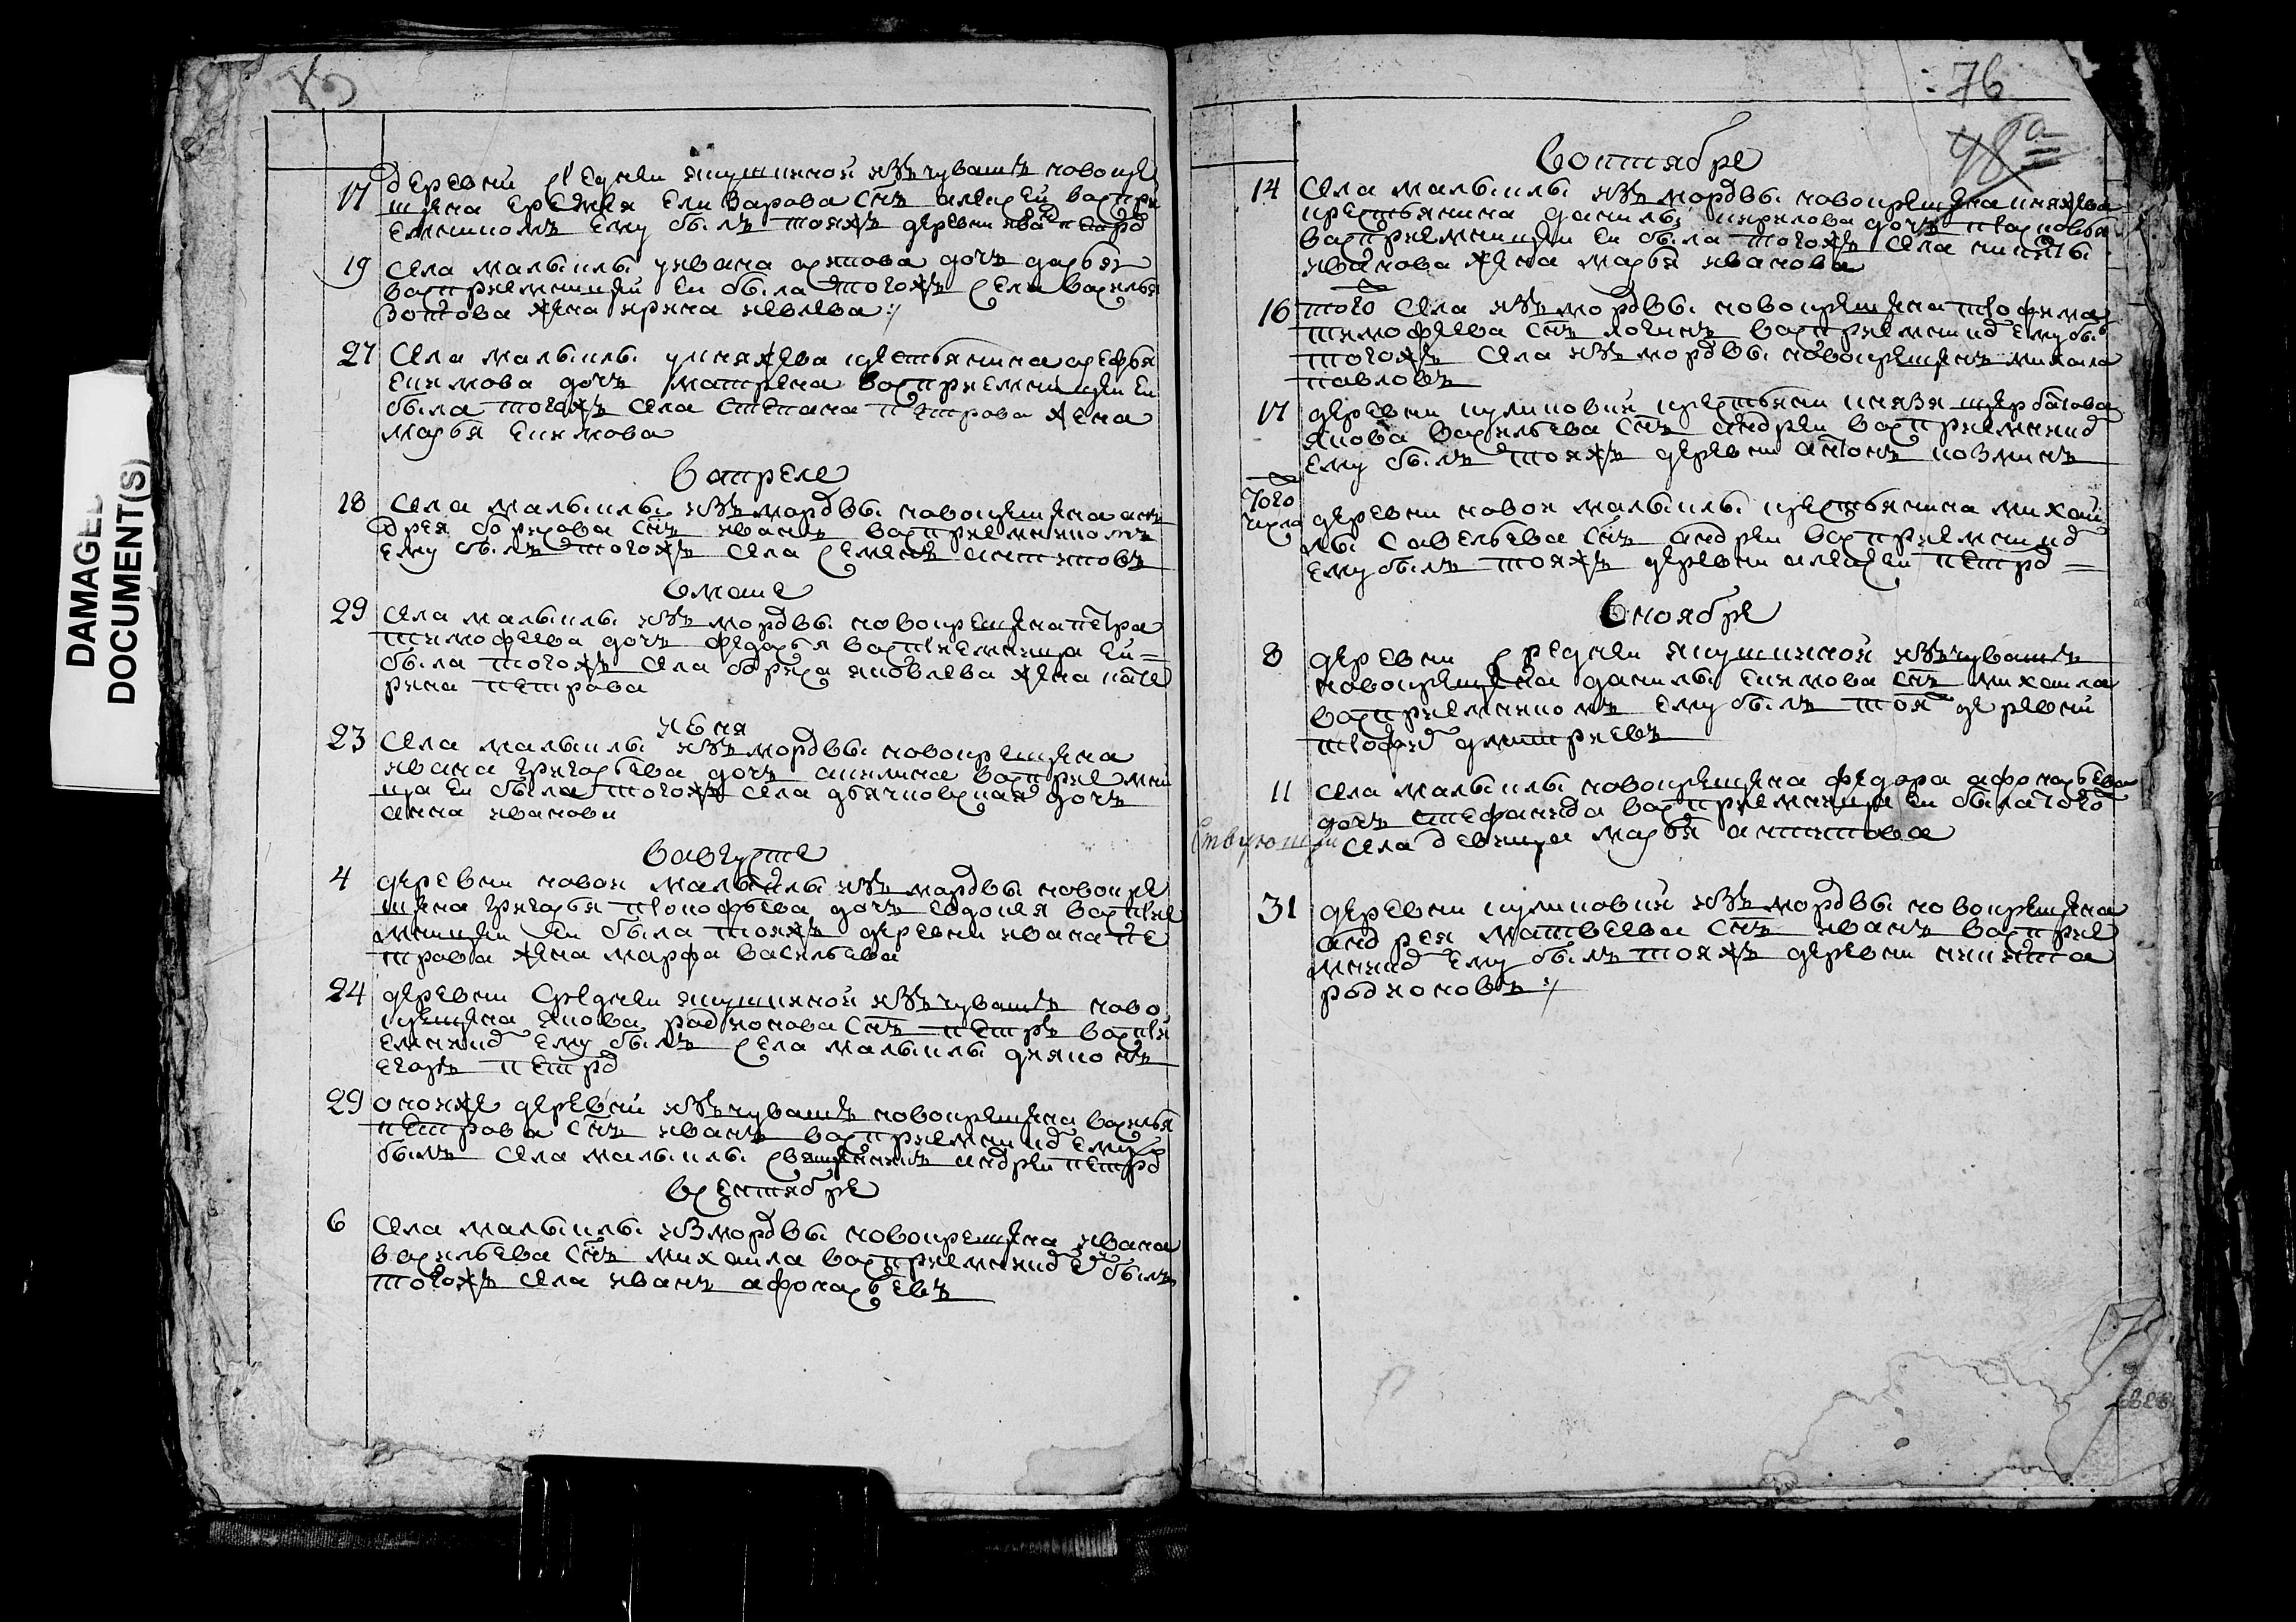 DAMAGED
DOCUMENT(S)
17 деревни средней якушкиной изъ чувашъ новокре
щена еремея еливарова снъ алексей восприе
емникомъ ему былъ тояжъ деревни ива петро
19 села малыклы у ивана дочь дарья
восприемницей ей была тогожъ села василья
зотова жена ирина
27 села малыклы у князева крестьянина арефья
екимова дочь матрена восприемницей ей
была тогожъ села степана петрова жена
марья екимова
в апреле
18 села малыклы изъ мордвы новокрещена ан
дрея борисова снъ иванъ восприемникомъ
ему былъ тогожъ села семенъ
в маие
29 села малыклы изъ мордвы новокрещена петра
тимофеева дочь федосья восприемница ей
была тогожъ села бориса яковлева жена кате
рина петрова
июня
23 села малыклы изъ мордвы новокрещена
ивана григорьева дочь акилина восприемни
ца ей была тогожъ села дьячковская дочь
анна иванова
в августе
4 деревни новой малыклы изъ мордвы новокре
щена григорья прокофьева дочь евдокия восприе
мницей ей была тояжъ деревни ивана пе
трова жена марфа васильева
24 деревни средней якушкиной изъ чувашъ ново
крещена якова радионова снъ петръ воспри
емнико ему былъ села малыклы дияконъ
егоръ петро
29 оноиже деревни изъ чувашъ новокрещена василья
петрова снъ иванъ восприемнико ему
былъ села малыклы священникъ андрей петро
в сентябре
6 села малыклы из мордвы новокрещена ивана
васильева снъ михаила восприемнико ему былъ
тогожъ села иванъ афонасьевъ
76
48а
в октябре
14 села малыклы изъ мордвы новокрещена князева
крестьянина данилы кирилова дочь парасковья
восприемницей ей была тогожъ села никиты
иванова жена марья иванова
16 того села изъ мордвы новокрещена трофима
тимофеева снъ логинъ восприемнико ему бы
тогожъ села изъ мордвы новокрещенъ михаила
павловъ
17 деревни куликовки крестьяни князя щербатова
якова васильева снъ андрей восприемнико
ему былъ тояжъ деревни антонъ козминъ
того числа деревни новой малыклы крестьянина михаи
лы савельева снъ андрей восприемнико
ему былъ тояжъ деревни алексей петро
в ноябре
8 деревни средней якушкиной изъ чувашъ
новокрещена данилы екимова снъ михаила
восприемникомъ ему былъ тоя деревни
трофи дмитриевъ
11 села малыклы новокрещена федора афонасьева
дочь стефанида восприемница ей была того
села девица марья
31 деревни куликовки изъ мордвы новокрещена
андрея матвеева снъ иванъ восприе
мнико ему былъ тояжъ деревни никита
родионовъ